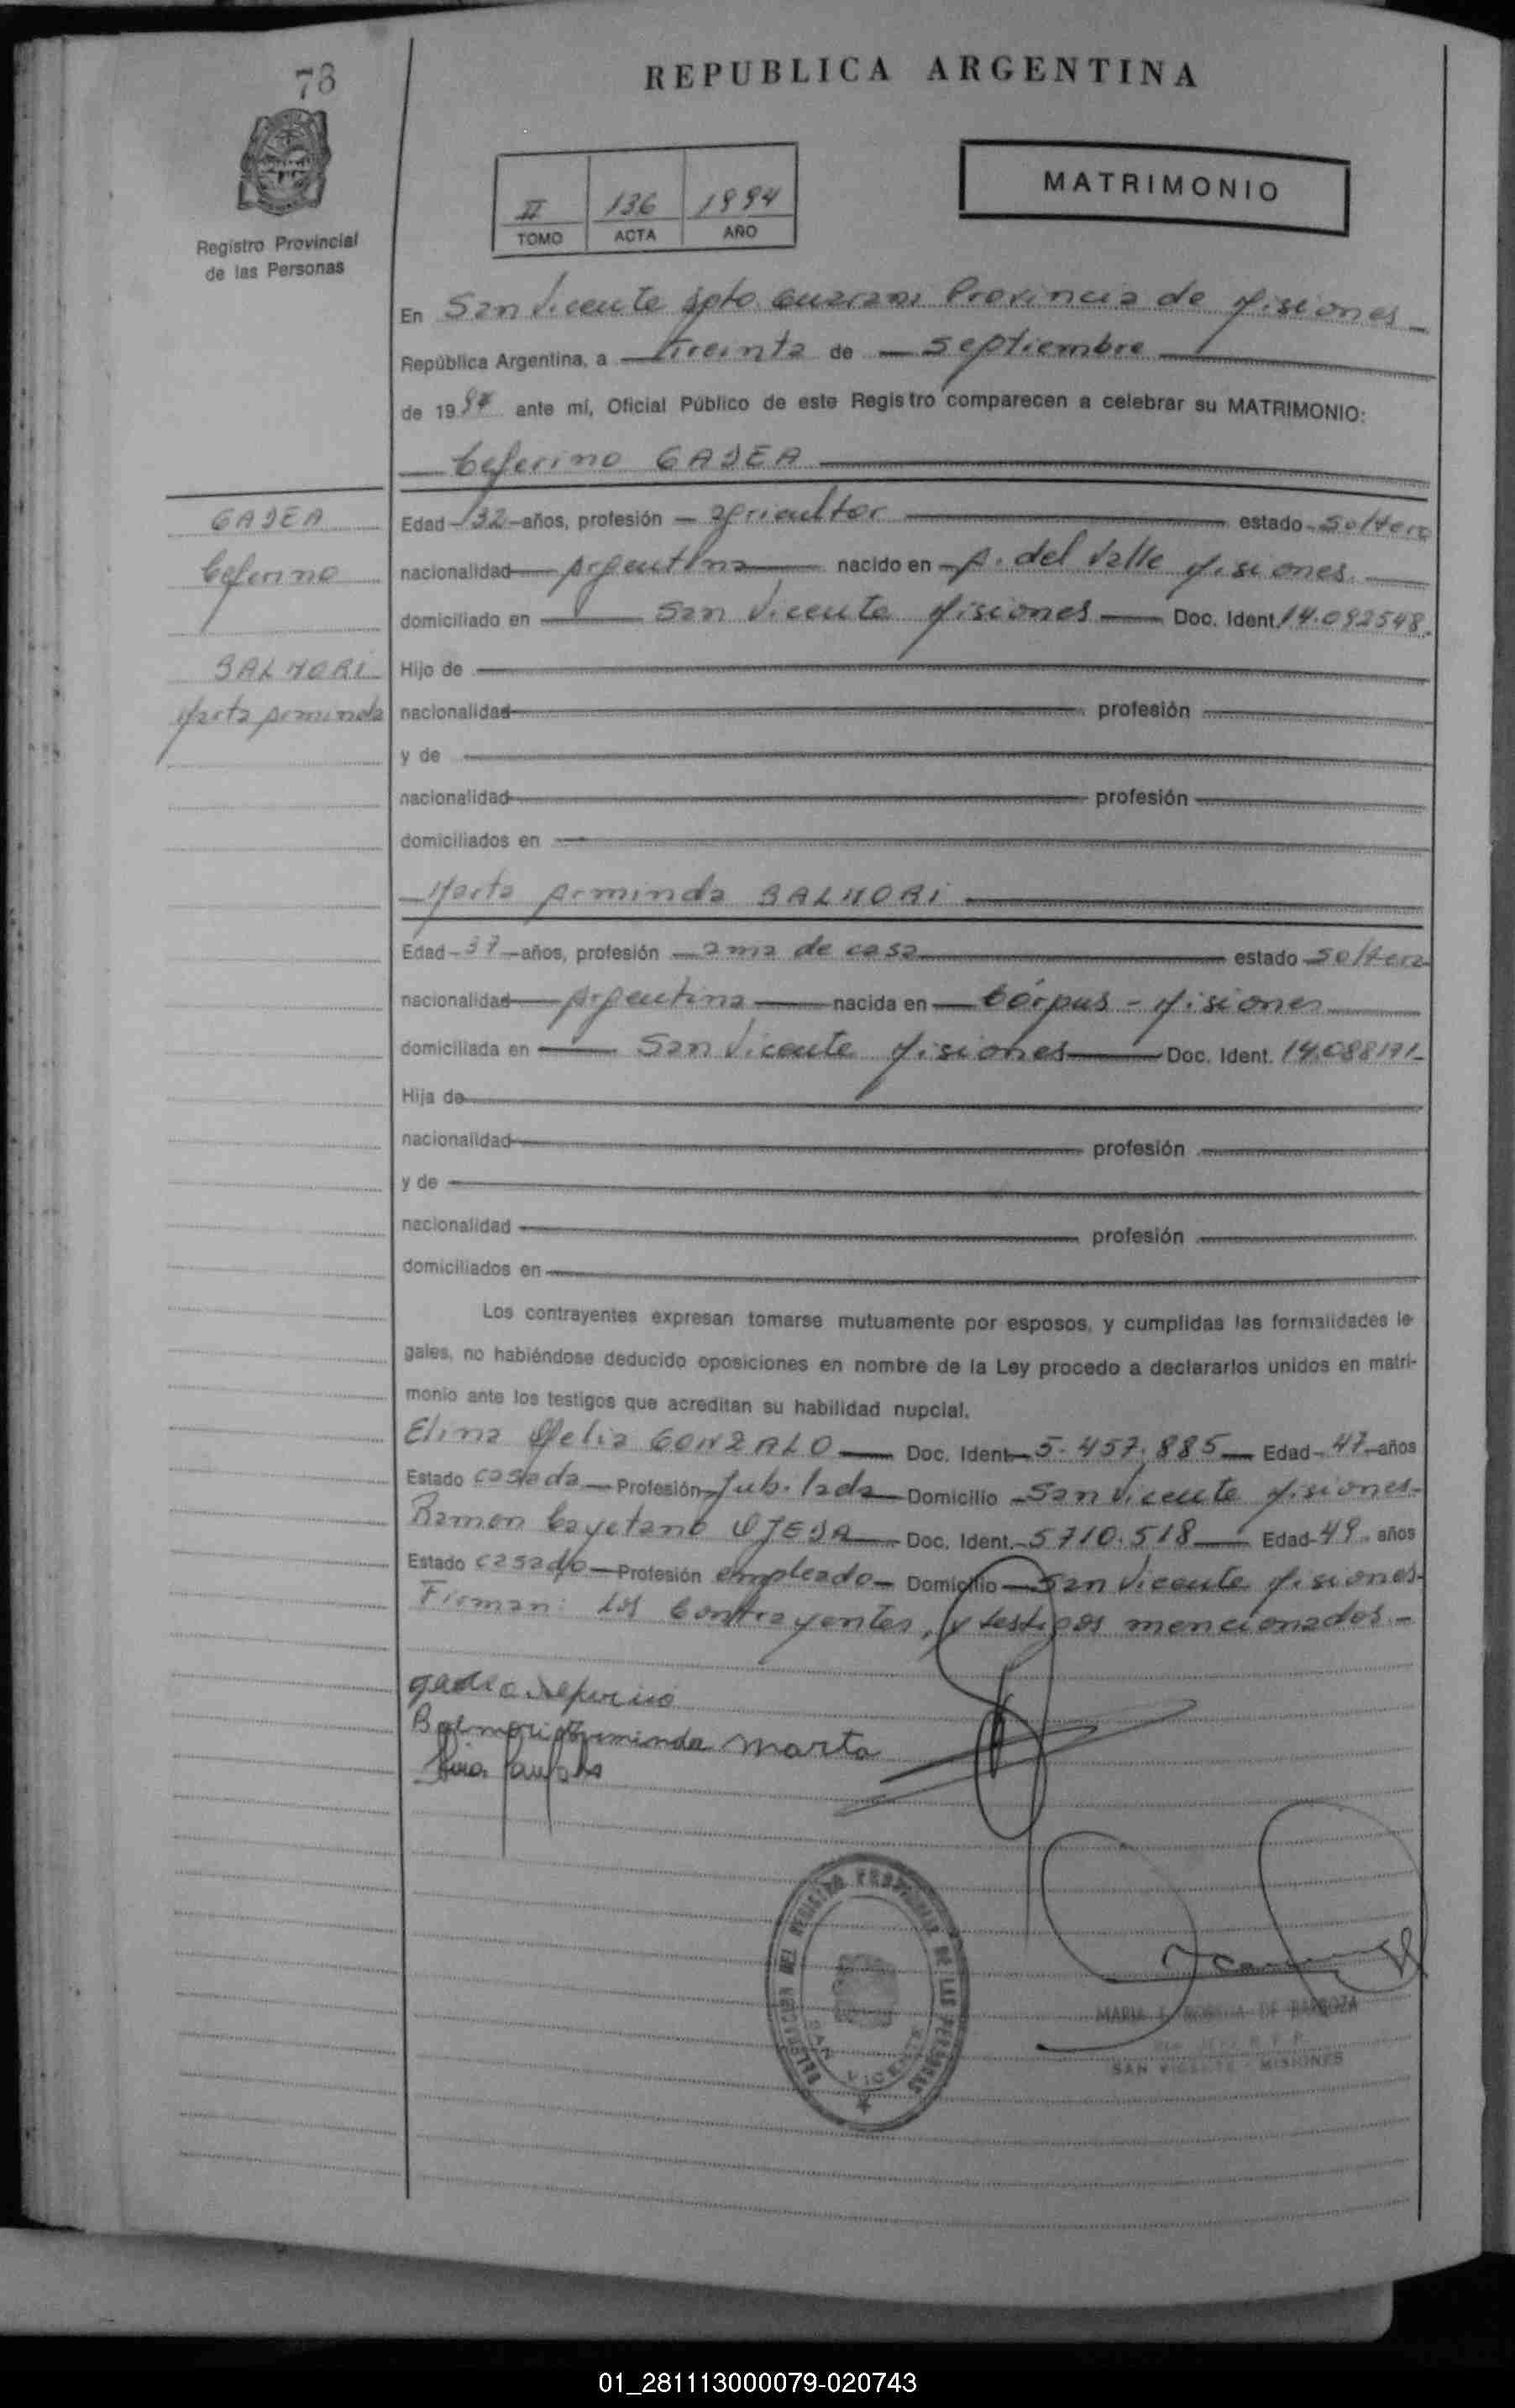 73
REPUBLICA ARGENTINA
MATRIMONIO
II 136 1994
TOMO ACTA AÑO
Registro Provincial
de las Personas
En San Vicente Dpto. Guarani Provincia de Misiones
República Argentina, a treinta de septiembre
de 1994 ante mí, Oficial Público de este Registro comparecen a celebrar su MATRIMONIO:
Ceferino GADEA
GADEA
Ceferino
BALMORI
Marta Arminda
Edad 32 años, profesión agricultor estado Soltero
nacionalidad Argentina nacido en A. del Valle Misiones
domiciliado en San Vicente Misiones Doc. Ident. 14.092548.
Hijo de
nacionalidad profesión
y de
nacionalidad profesión
domiciliados en
Marta Arminda BALMORI
Edad 37 años, profesión ama de casa estado Soltera
nacionalidad Argentina nacida en Córpus - Misiones
domiciliada en San Vicente Misiones Doc. Ident. 14.088171
Hija de
nacionalidad profesión
y de
nacionalidad profesión
domiciliados en
Los contrayentes expresan tomarse mutuamente por esposos, y cumplidas las formalidades le-
gales, no habiéndose deducido oposiciones en nombre de la Ley procedo a declararlos unidos en matri-
monio ante los testigos que acreditan su habilidad nupcial.
Elina Ofelia GONZALO Doc. Ident. 5.457.885 Edad 47 años
Estado casada Profesión Jubilada Domicilio San Vicente Misiones
Ramon Cayetano OJEDA Doc. Ident. 5710.518 Edad 49 años
Estado casado Profesión empleado Domicilio San Vicente Misiones
Firman: Los Contrayentes, y testigos mencionados.-
gadea seferino
Balmori Arminda Marta
DELEGACION DEL REGISTRO PROVINCIAL DE LAS PERSONAS
SAN VICENTE
MARIA DE BARBOZA
SAN VICENTE - MISIONES
01_281113000079-020743